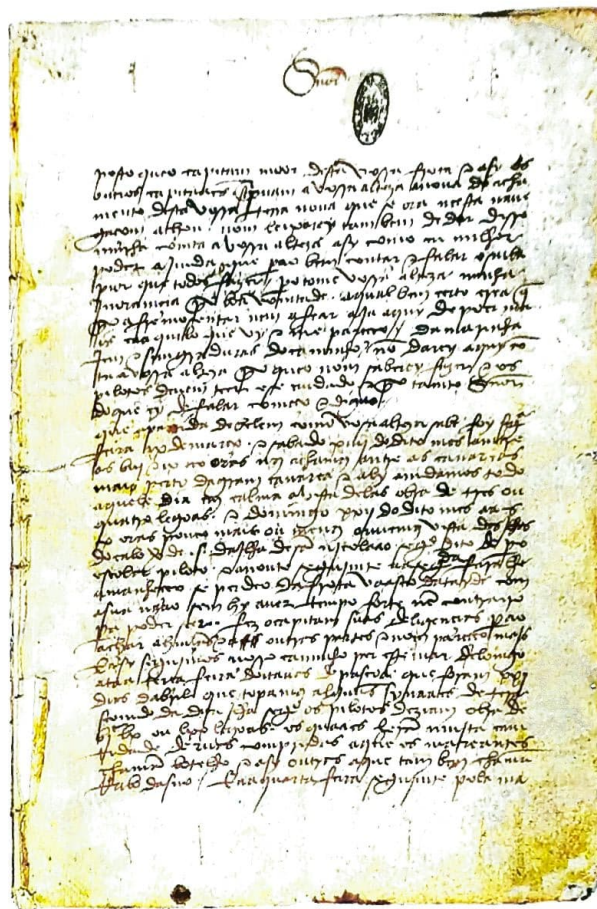 Snõr
posto que o capitam moor desta vossa frota e asy os
outros capitaães screpuam a vossa alteza a noua do acha
mento desta vossa terra noua que se ora neesta naue
gaçom achou. nom leixarey tambem de dar disso
minha comta a vossa alteza asy como eu milhor
poder ajmda que pera o bem contar e falar o saiba
pior que todos fazer. pero tome vossa alteza minha
jnoramçia por boa vomtade. aqual bem certo crea q̃
por afremosentar nem afear aja aquy de poer ma
is ca aquilo que vy e me pareceo / da marinha
jem e simgraduras do caminho nõ darey aquy cõ
ta a vossa alteza por que o nom saberey fazer e os
pilotos deuem teer ese cuidado e por tamto Snõr
do que ey de falar começo e diguo
que a partida de belem como vossa alteza sabe foy segª
feira ix de março. e sabado xiiij do dito mes amtre
as biij e ix oras nos achamos antre as canareas
mais perto da gram canarea e aly amdamos todo
aquele dia em calma a vista delas obra de tres ou
quatro legoas. e domingo xxij do dito mes aas
x oras pouco mais ou menos ouuemos vista das jlhas
do cabo verde .s. da jlha de sã nicolaao segº dito de pº
escolar piloto. e a noute segujmte aa segda feira lhe
amanheceo se perdeo da frota vaasco datayde com
a sua naao sem hy auer tempo forte nẽ contrairo
pera poder seer. fez o capitam suas deligençias pera o
achar a huũas e a outras partes e nom pareçeo majs
E asy segujmos nosso caminho per este mar de lomgo
ataa terça feira doitauas de pascoa que foram xxj
dias dabril que topamos alguũs synaaes de terra
seemdo da dita jlha segº os pilotos deziam obra de
bjc lx ou lxx legoas. os quaaes heram mujta cam
tidade deruas compridas a que os mareantes
chamã botelho e asy outras a que tam bem chamã
rrabo dasno. / E aa quarta feira segujmte pola ma